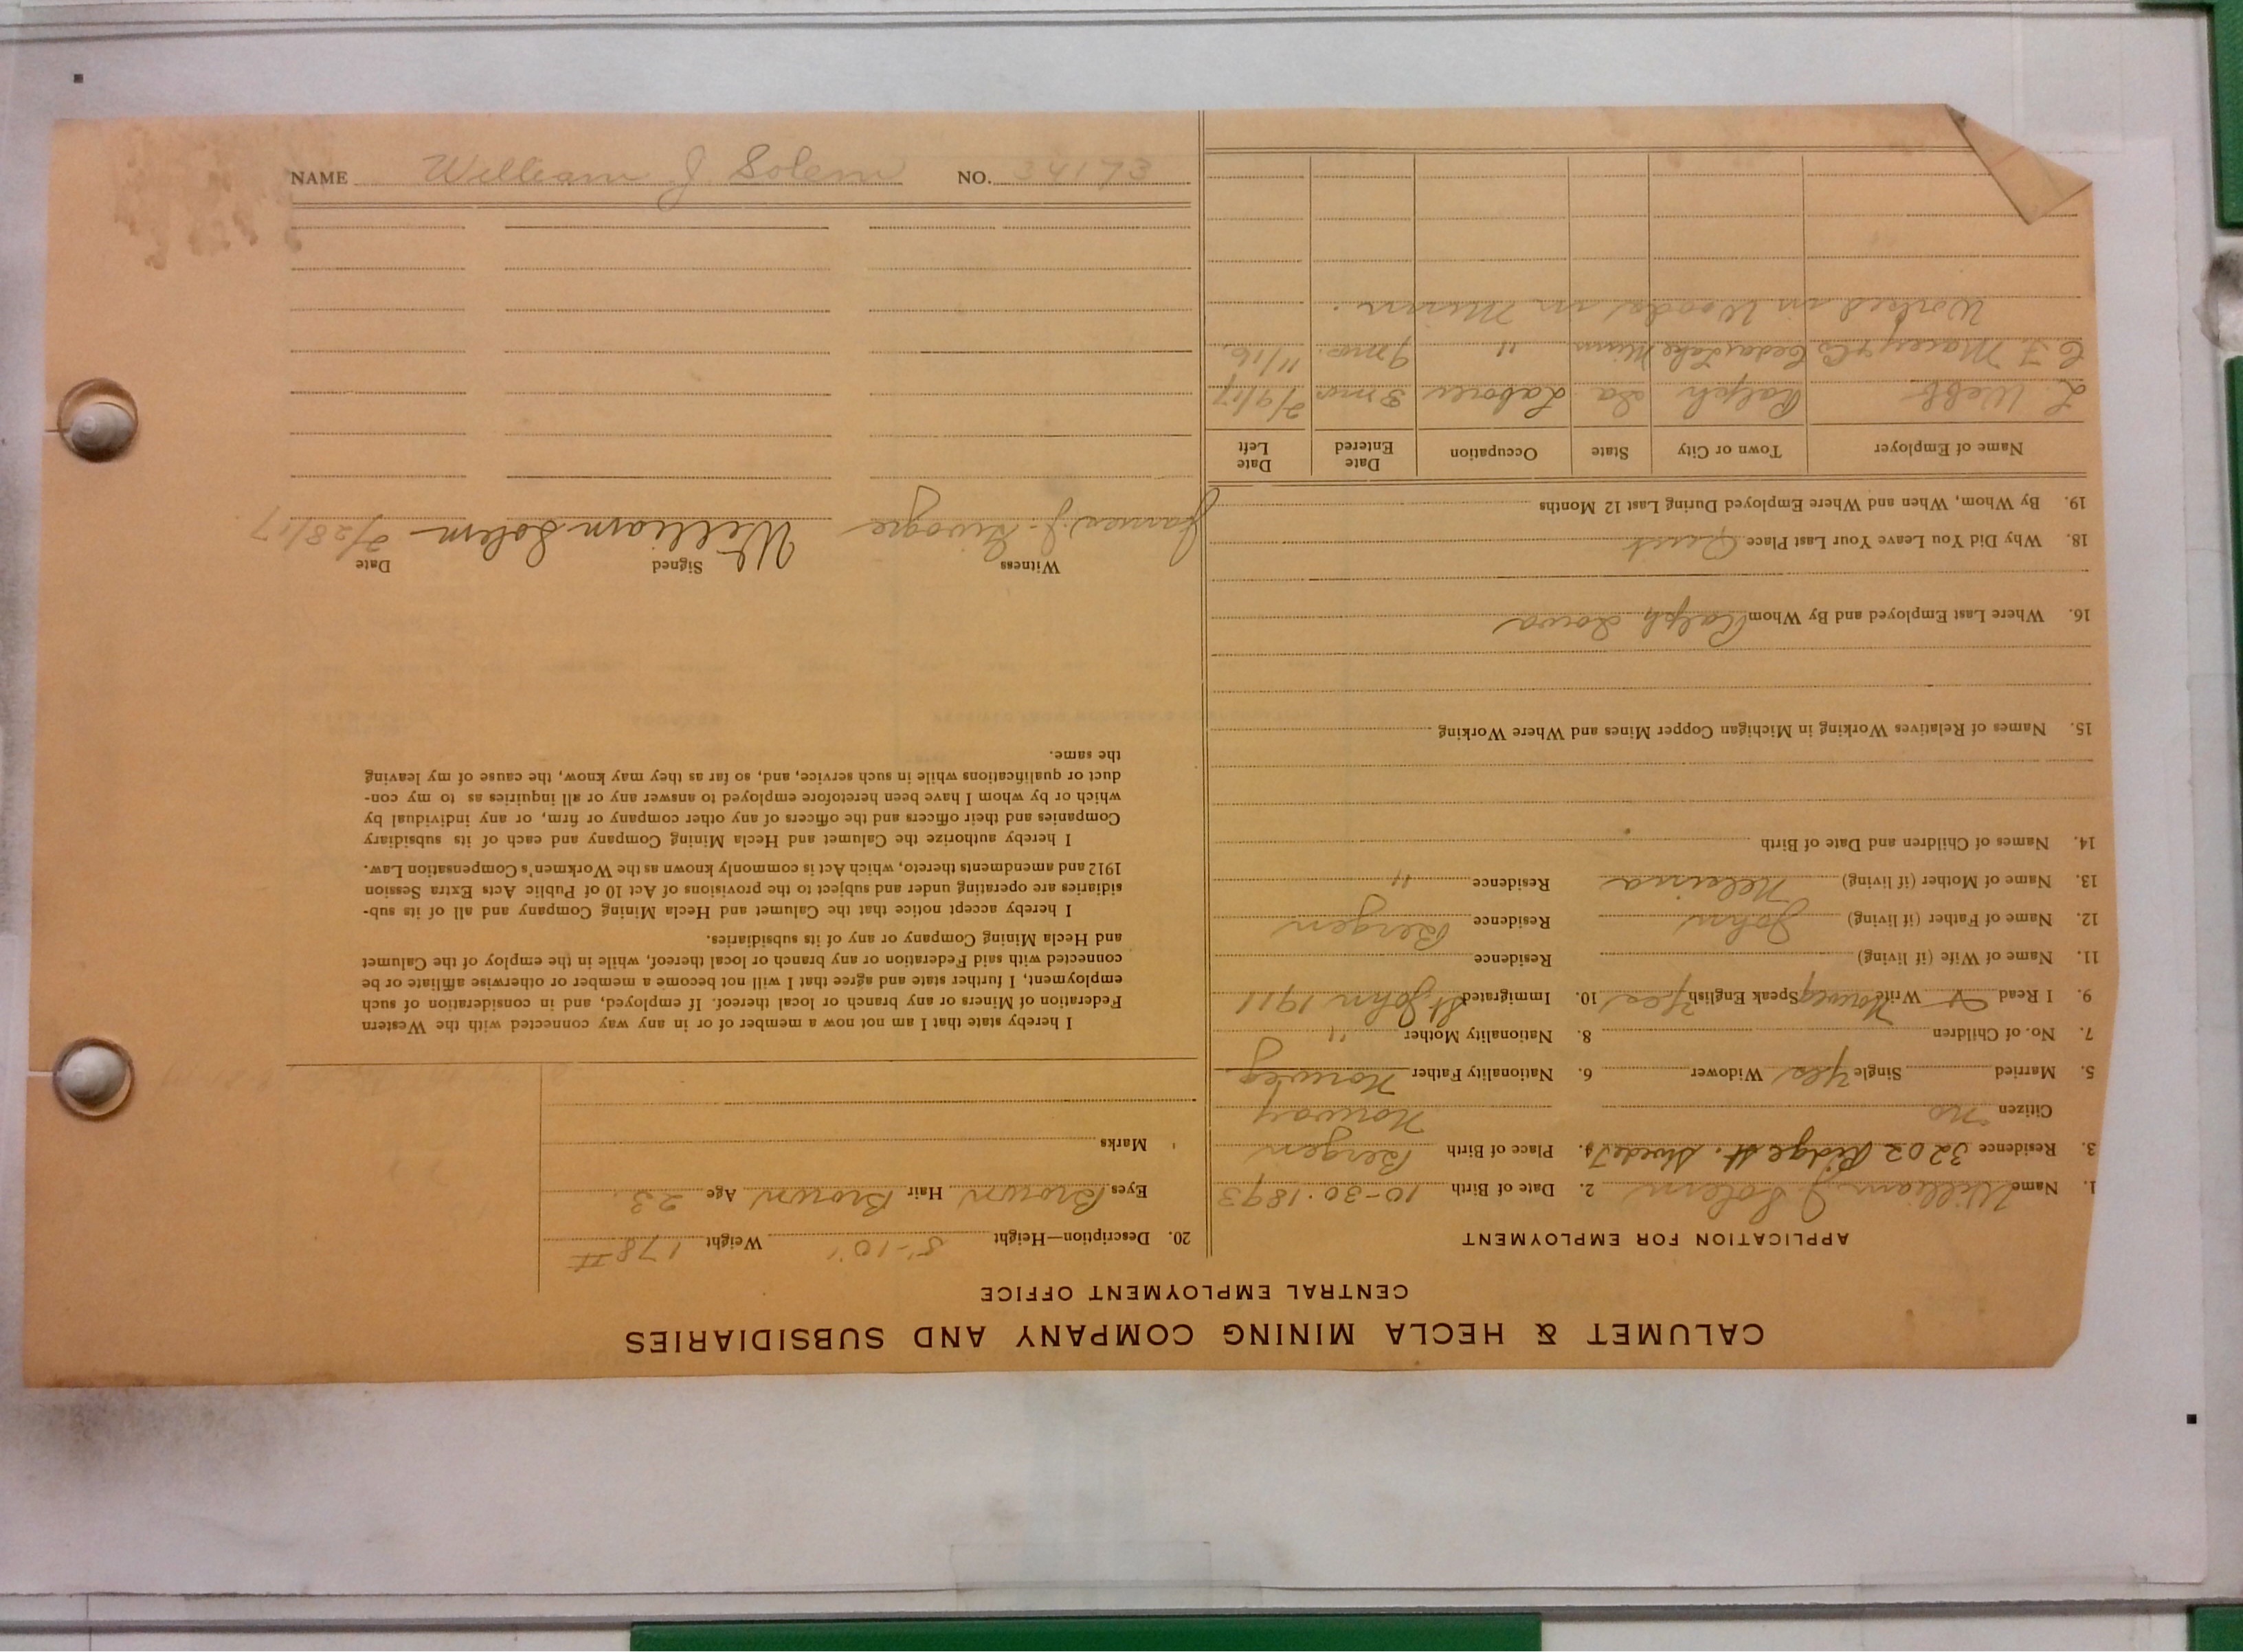 CALUMET & HECLA MINING COMPANY AND SUBSIDIARIES
CENTRAL EMPLOYMENT OFFICE
APPLICATION FOR EMPLOYMENT
1. Name William J. Solem 2. Date of Birth 10-30-1893
3. Residence 3202 Ridge St. 4. Place of Birth Bergen
Citizen no Norway
5. Married Single Yes Widower 6. Nationality Father Norweg
7. No. of Children 8. Nationality Mother "
9. I Read Write Norweg Speak English Yes 10. Immigrated St John 1911
11. Name of Wife (if living) Residence
12. Name of Father (if living) John Residence Bergen
13. Name of Mother (if living) Residence "
14. Names of Children and Date of Birth
15. Names of Relatives Working in Michigan Copper Mines and Where Working
16. Where Last Employed and By Whom Ralph Iowa
18. Why Did You Leave Your Last Place Quit
19. By Whom, When and Where Employed During Last 12 Months
Name of Employer Town or City State Occupation Date Entered Date Left
L. Webb Ralph Ia Laborer 3 mos 2/9/17
C. F. Macey & Co Cedar Lake Minn " 9 mos. 11/16
Worked in Woods in Minn.
20. Description—Height 5'-10" Weight 178#
Eyes Brown Hair Brown Age 23
Marks
I hereby state that I am not now a member of or in any way connected with the Western
Federation of Miners or any branch or local thereof. If employed, and in consideration of such
employment, I further state and agree that I will not become a member or otherwise affiliate or be
connected with said Federation or any branch or local thereof, while in the employ of the Calumet
and Hecla Mining Company or any of its subsidiaries.
I hereby accept notice that the Calumet and Hecla Mining Company and all of its sub-
sidiaries are operating under and subject to the provisions of Act 10 of Public Acts Extra Session
1912 and amendments thereto, which Act is commonly known as the Workmen's Compensation Law.
I hereby authorize the Calumet and Hecla Mining Company and each of its subsidiary
Companies and their officers and the officers of any other company or firm, or any individual by
which or by whom I have been heretofore employed to answer any or all inquiries as to my con-
duct or qualifications while in such service, and, so far as they may know, the cause of my leaving
the same.
Witness Signed Date
James J. William Solem 2/28/17
NAME William J. Solem NO. 34173